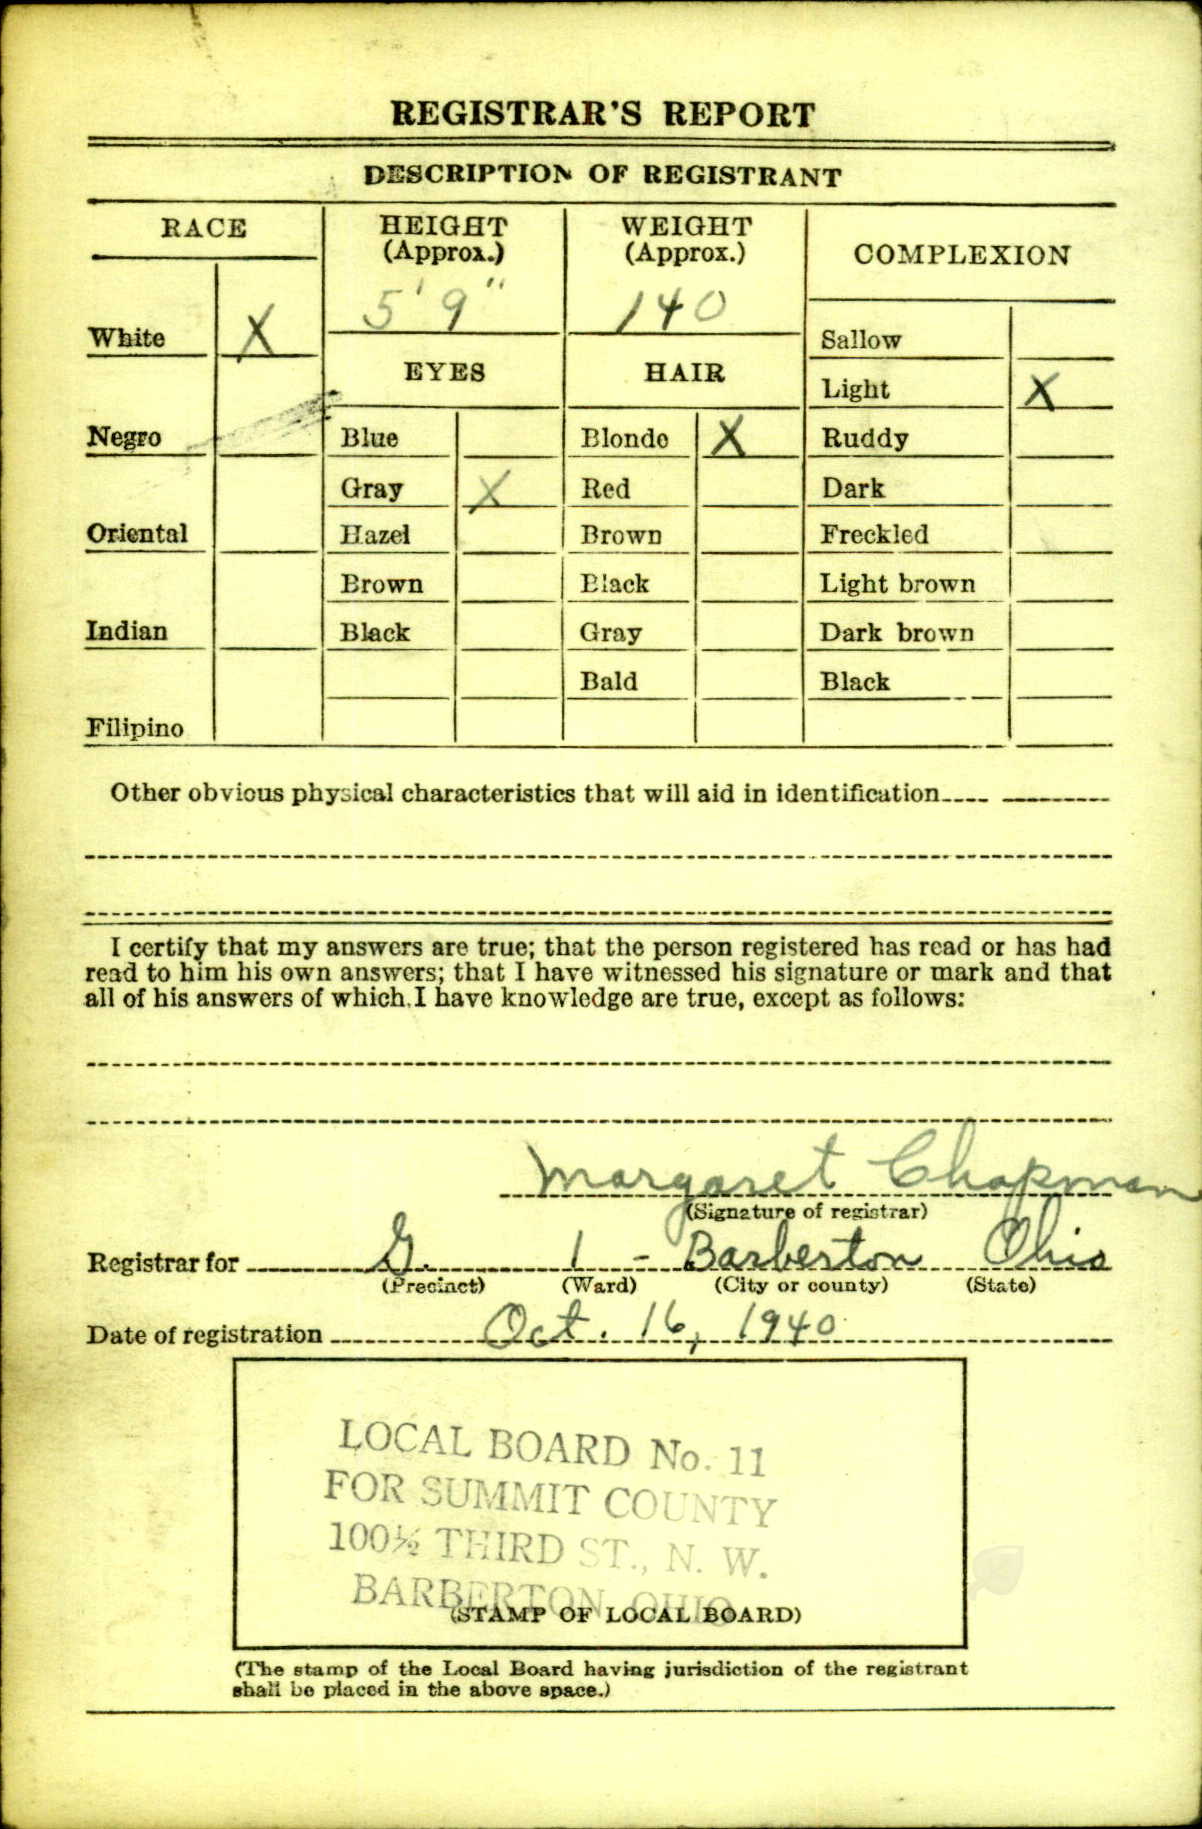 REGISTRAR'S REPORT
DESCRIPTION OF REGISTRANT
RACE
HEIGHT
(Approx.)
WEIGHT
(Approx.)
COMPLEXION
5' 9"
140
White X
Sallow
EYES
HAIR
Light X
Negro
Blue
Blonde X
Ruddy
Gray X
Red
Dark
Oriental
Hazel
Brown
Freckled
Brown
Black
Light brown
Indian
Black
Gray
Dark brown
Bald
Black
Filipino
Other obvious physical characteristics that will aid in identification
I certify that my answers are true; that the person registered has read or has had
read to him his own answers; that I have witnessed his signature or mark and that
all of his answers of which I have knowledge are true, except as follows:
Margaret Chapman
(Signature of registrar)
Registrar for G. 1 - Barberton Ohio
(Precinct) (Ward) (City or county) (State)
Date of registration Oct. 16, 1940
LOCAL BOARD No. 11
FOR SUMMIT COUNTY
100½ THIRD ST., N. W.
BARBERTON, OHIO
(STAMP OF LOCAL BOARD)
(The stamp of the Local Board having jurisdiction of the registrant
shall be placed in the above space.)